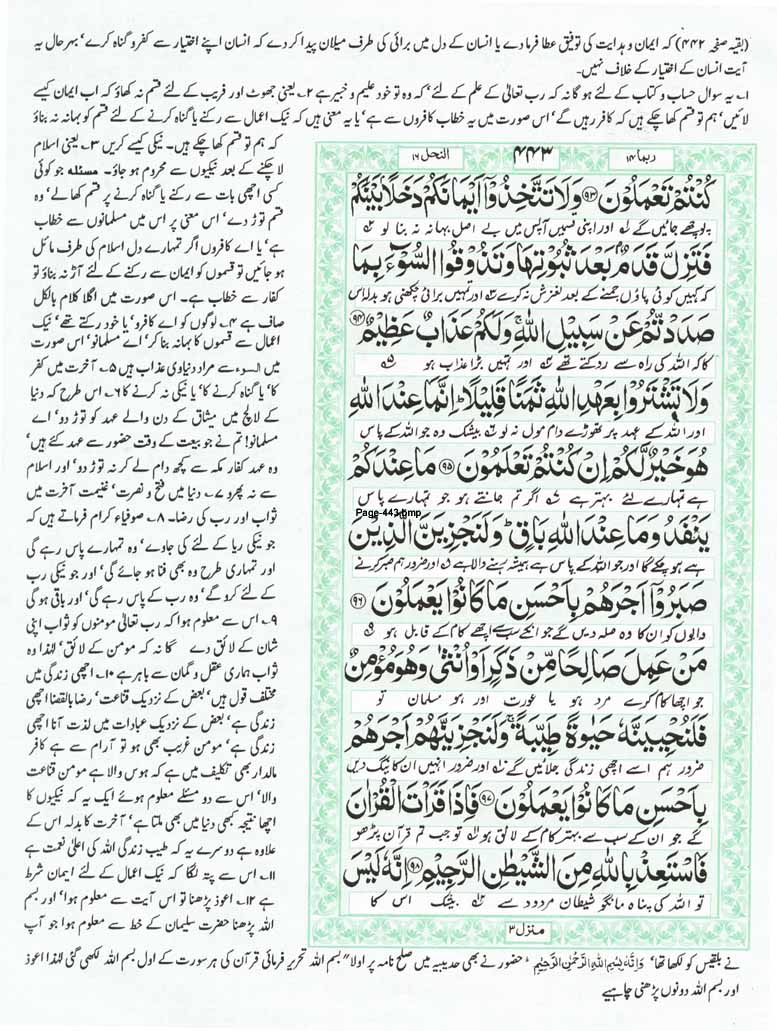 (بقیہ صفحہ ۴۴۲) کہ ایمان و ہدایت کی توفیق عطا فرما دے یا انسان کے دل میں برائی کی طرف میلان پیدا کر دے کہ انسان اپنے اختیار سے کفر و گناہ کرے' بہر حال یہ
آیت انسان کے اختیار کے خلاف نہیں۔
۱۔ یہ سوال حساب و کتاب کے لئے ہو گا نہ کہ رب تعالیٰ کے علم کے لئے' کہ وہ تو خود علیم و خبیر ہے ۲۔ یعنی جھوٹ اور فریب کے لئے قسم نہ کھاؤ کہ اب ایمان کیسے
لائیں' ہم تو قسم کھا چکے ہیں کہ کافر رہیں گے' اس صورت میں یہ خطاب کافروں سے ہے' یا یہ معنی ہیں کہ نیک اعمال سے رکنے یا گناہ کرنے کے لئے قسم کو بہانہ نہ بناؤ
کہ ہم تو قسم کھا چکے ہیں۔ نیکی کیسے کریں ۳۔ یعنی اسلام
لا چکنے کے بعد نیکیوں سے محروم ہو جاؤ۔ مسئلہ جو کوئی
کسی اچھی بات سے رکنے یا گناہ کرنے پر قسم کھا لے' وہ
قسم توڑ دے' اس معنی پر اس میں مسلمانوں سے خطاب
ہے' یا اے کافروں اگر تمہارے دل اسلام کی طرف مائل
ہو جائیں تو قسموں کو ایمان سے رکنے کے لئے آڑ نہ بناؤ تو
کفار سے خطاب ہے۔ اس صورت میں اگلا کلام بالکل
صاف ہے ۴۔ لوگوں کو اے کافرو' یا خود رکتے تھے' نیک
اعمال سے قسموں کا بہانہ بنا کر' اے مسلمانو' اس صورت
میں السوء سے مراد دنیاوی عذاب ہیں ۵۔ آخرت میں کفر
کا' یا گناہ کرنے کا' یا نیکی نہ کرنے کا ۶۔ اس طرح کہ دنیا
کے لالچ میں میثاق کے دن والے عہد کو توڑ دو' اے
مسلمانو! تم نے جو بیعت کے وقت حضور سے عہد کئے ہیں'
وہ عہد کفار مکہ سے کچھ دام لے کر نہ توڑ دو' اور اسلام
سے نہ پھرو ۷۔ دنیا میں فتح و نصرت' غنیمت آخرت میں
ثواب اور رب کی رضا۔ ۸۔ صوفیاء کرام فرماتے ہیں کہ
جو نیکی ریا کے لئے کی جاوے' وہ تمہارے پاس رہے گی
اور تمہاری طرح وہ بھی فنا ہو جائے گی' اور جو نیکی رب
کے لئے کرو گے' وہ رب کے پاس رہے گی' اور باقی ہو گی
۹۔ اس سے معلوم ہوا کہ رب تعالیٰ مومنوں کو ثواب اپنی
شان کے لائق دے گا نہ کہ مومن کے لائق' لہذا وہ
ثواب ہماری عقل و گمان سے باہر ہے ۱۰۔ اچھی زندگی میں
مختلف قول ہیں' بعض کے نزدیک قناعت' رضا بالقضا اچھی
زندگی ہے' بعض کے نزدیک عبادات میں لذت آنا اچھی
زندگی ہے' مومن غریب بھی ہو تو آرام سے ہے کافر
مالدار بھی تکلیف میں ہے کہ ہوس والا ہے مومن قناعت
والا' اس سے دو مسئلے معلوم ہوئے ایک یہ کہ نیکیوں کا
اچھا نتیجہ کبھی دنیا میں بھی ملتا ہے' آخرت کا بدلہ اس کے
علاوہ ہے دوسرے یہ کہ طیب زندگی اللہ کی اعلیٰ نعمت ہے
۱۱۔ اس سے پتہ لگا کہ نیک اعمال کے لئے ایمان شرط
ہے ۱۲۔ اعوذ پڑھنا تو اس آیت سے معلوم ہوا' اور بسم
اللہ پڑھنا حضرت سلیمان کے خط سے معلوم ہوا جو آپ
ربما ۱۴
۴۴۳
النحل ۱۶
كُنْتُمْ تَعْمَلُوْنَ ﴿۹۳﴾ وَلَا تَتَّخِذُوْٓا اَيْمَانَكُمْ دَخَلًۢا بَيْنَكُمْ
پوچھے جائیں گے اور اپنی قسمیں آپس میں بے اصل بہانہ نہ بنا لو
فَتَزِلَّ قَدَمٌۢ بَعْدَ ثُبُوْتِهَا وَتَذُوْقُوا السُّوْٓءَ بِمَا
کہ کہیں کوئی پاؤں جمنے کے بعد لغزش نہ کرے اور تمہیں برائی چکھنی ہو بدلہ اس
صَدَدْتُّمْ عَنْ سَبِيْلِ اللّٰهِ ۚ وَلَكُمْ عَذَابٌ عَظِيْمٌ ﴿۹۴﴾
کا کہ اللہ کی راہ سے روکتے تھے اور تمہیں بڑا عذاب ہو
وَلَا تَشْتَرُوْا بِعَهْدِ اللّٰهِ ثَمَنًا قَلِيْلًا ؕ اِنَّمَا عِنْدَ اللّٰهِ
اور اللہ کے عہد پر تھوڑے دام مول نہ لو بیشک وہ جو اللہ کے پاس
هُوَ خَيْرٌ لَّكُمْ اِنْ كُنْتُمْ تَعْلَمُوْنَ ﴿۹۵﴾ مَا عِنْدَكُمْ
ہے تمہارے لئے بہتر ہے اگر تم جانتے ہو جو تمہارے پاس
Page-443.bmp
يَنْفَدُ وَمَا عِنْدَ اللّٰهِ بَاقٍ ؕ وَلَنَجْزِيَنَّ الَّذِيْنَ
ہے ہو چکے گا اور جو اللہ کے پاس ہے ہمیشہ رہنے والا ہے اور ضرور ہم صبر کرنے
صَبَرُوْٓا اَجْرَهُمْ بِاَحْسَنِ مَا كَانُوْا يَعْمَلُوْنَ ﴿۹۶﴾
والوں کو ان کا وہ صلہ دیں گے جو انکے سب سے اچھے کام کے قابل ہو
مَنْ عَمِلَ صَالِحًا مِّنْ ذَكَرٍ اَوْ اُنْثٰى وَهُوَ مُؤْمِنٌ
جو اچھا کام کرے مرد ہو یا عورت اور ہو مسلمان تو
فَلَنُحْيِيَنَّهٗ حَيٰوةً طَيِّبَةً ۚ وَلَنَجْزِيَنَّهُمْ اَجْرَهُمْ
ضرور ہم اسے اچھی زندگی جلائیں گے اور ضرور انہیں ان کا نیگ دیں
بِاَحْسَنِ مَا كَانُوْا يَعْمَلُوْنَ ﴿۹۷﴾ فَاِذَا قَرَاْتَ الْقُرْاٰنَ
گے جو ان کے سب سے بہتر کام کے لائق ہو تو جب تم قرآن پڑھو
فَاسْتَعِذْ بِاللّٰهِ مِنَ الشَّيْطٰنِ الرَّجِيْمِ ﴿۹۸﴾ اِنَّهٗ لَيْسَ
تو اللہ کی پناہ مانگو شیطان مردود سے بیشک اس کا
منزل ۳
نے بلقیس کو لکھا تھا' وَاِنَّهٗ بِسْمِ اللّٰهِ الرَّحْمٰنِ الرَّحِيْمِ ' حضور نے بھی حدیبیہ میں صلح نامہ پر اولا" بسم اللہ تحریر فرمائی قرآن کی ہر سورت کے اول بسم اللہ لکھی گئی لہذا اعوذ
اور بسم اللہ دونوں پڑھنی چاہیے